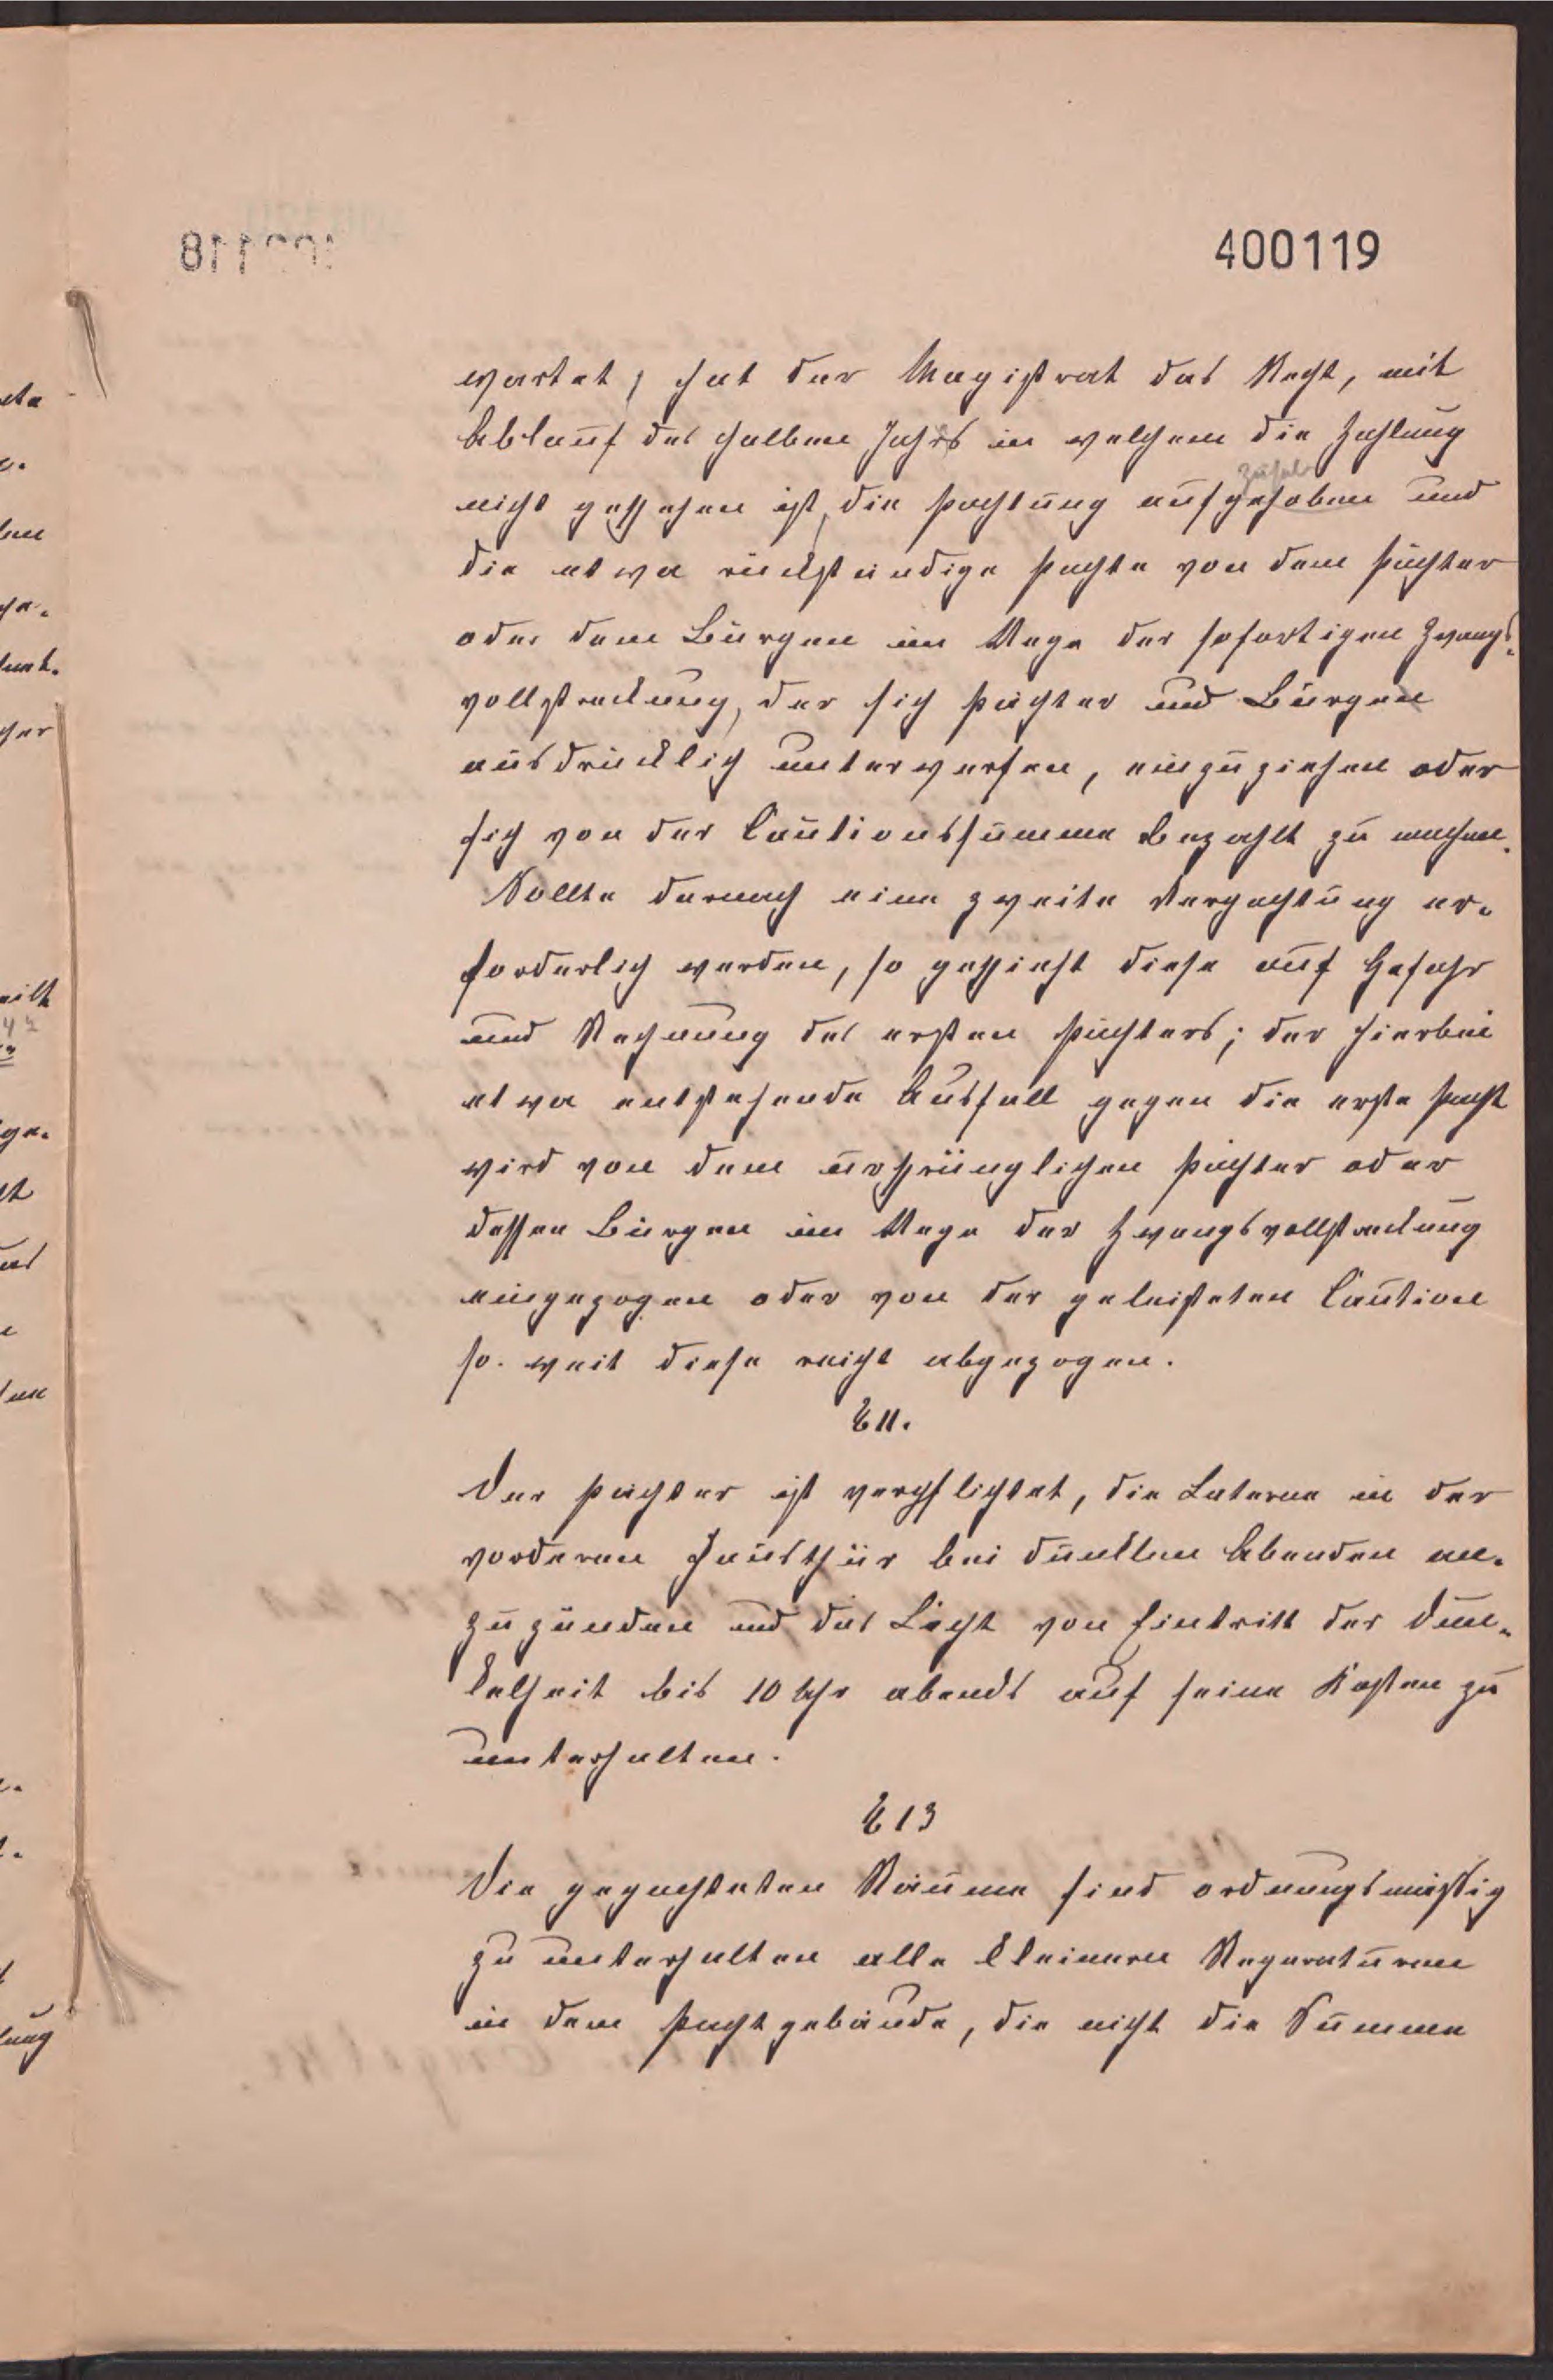 400119
wartet, hat der Magistrat das Recht, mit
Ablauf des halben Jahrs in welchem die Zahlung
nicht geschehen ist, die Pachtung aufgehoben und
die etwa rückständige Pachte von dem Pächter
oder dem Bürgen im Wege der sofortigen Zwangs-
vollstreckung, der sich Pächter und Bürgen
ausdrücklich unterwerfen, einzuziehen oder
sich von der Cautionssumme bezahlt zu machen.
Sollte darnach eine zweite Verpachtung er-
forderlich werden, so geschieht diese auf Gefahr
und Rechnung des ersten Pächters; der hierbei
etwa entstehende Ausfall gegen die erste Pacht
wird von dem ursprünglichen Pächter oder
dessen Bürgen im Wege der Zwangsvollstreckung
eingezogen oder von der geleisteten Caution
so weit diese reicht abgezogen.
§ 11.
Der Pächter ist verpflichtet, die Laterne in der
vorderen Hausthür bei dunklen Abenden an-
zuzünden und das Licht von Eintritt der Dun-
kelheit bis 10 Uhr abends auf seine Kosten zu
unterhalten.
§ 13
Die gepachteten Räume sind ordnungsmäßig
zu unterhalten alle kleineren Reparaturen
in dem Pachtgebäude, die nicht die Summe